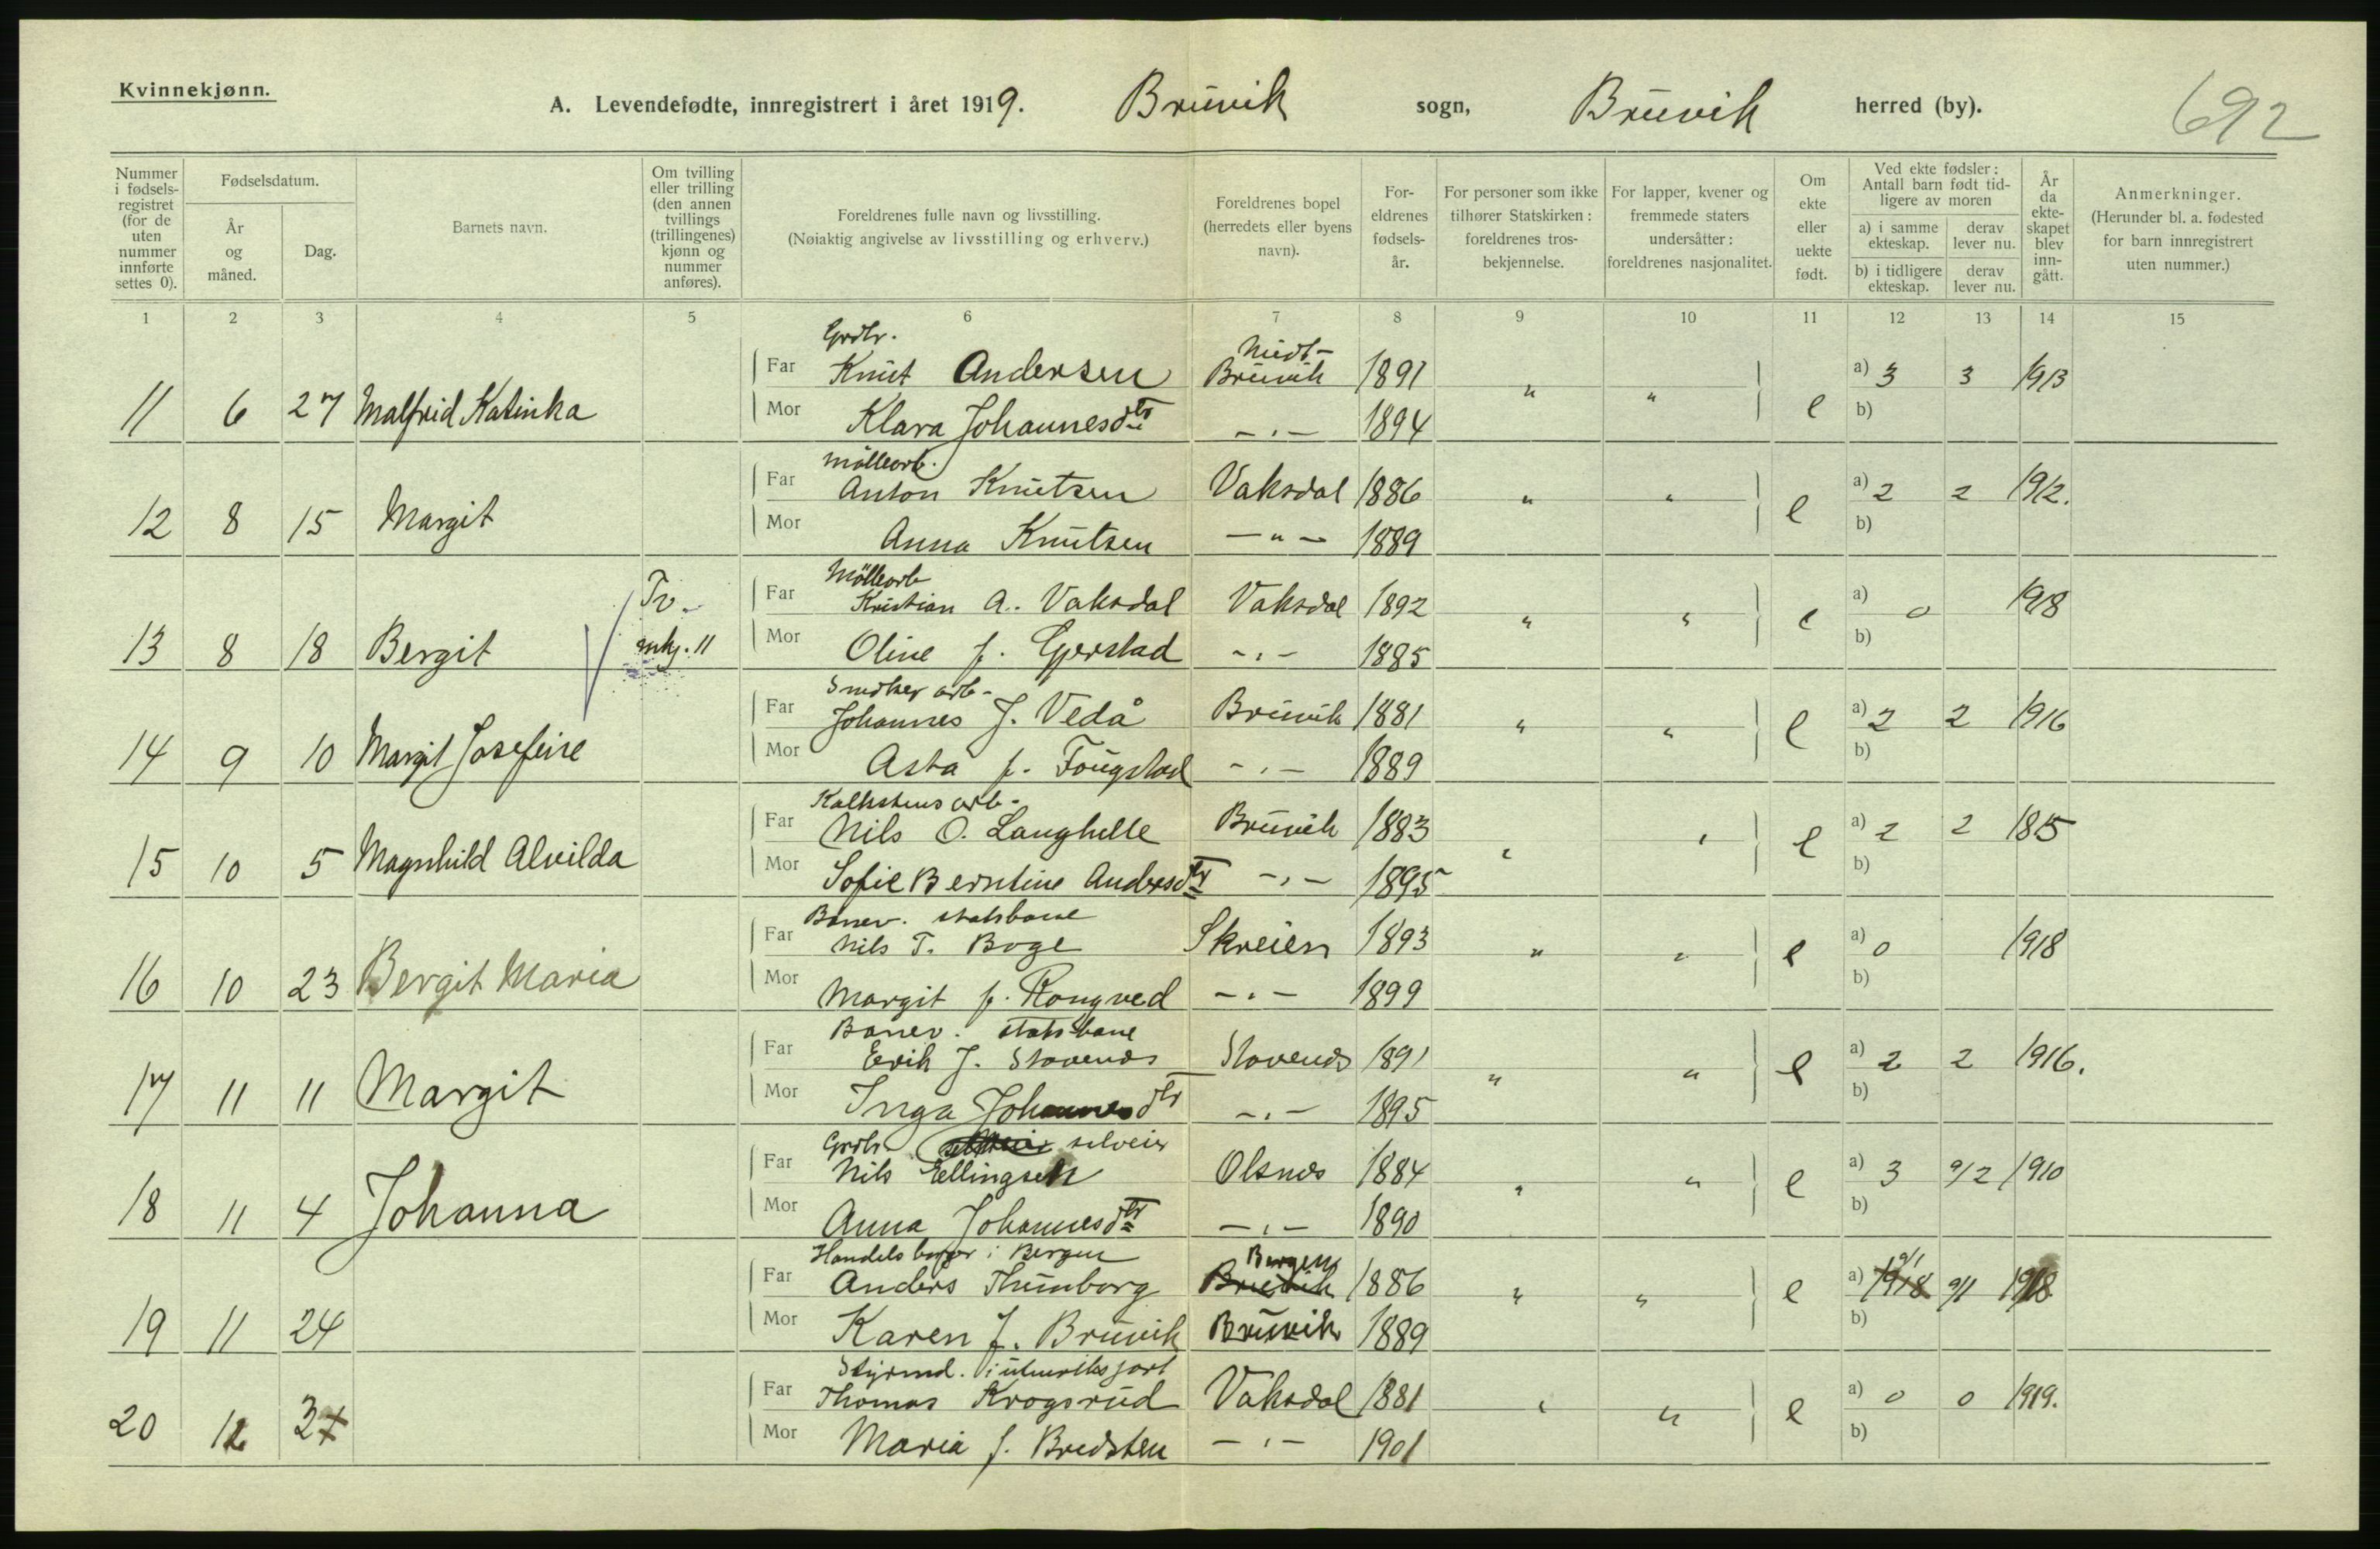 Kvinnekjønn.
A. Levendefødte, innregistrert i året 1919. Bruvik sogn, Bruvik herred (by). 692
Nummer i fødselsregistret (for de uten nummer innførte settes 0).
Fødselsdatum.
År og måned.
Dag.
Barnets navn.
Om tvilling eller trilling (den annen tvillings (trillingenes) kjønn og nummer anføres).
Foreldrenes fulle navn og livsstilling.
(Nøiaktig angivelse av livsstilling og erhverv.)
Foreldrenes bopel (herredets eller byens navn).
Foreldrenes fødselsår.
For personer som ikke tilhører Statskirken: foreldrenes trosbekjennelse.
For lapper, kvener og fremmede staters undersåtter: foreldrenes nasjonalitet.
Om ekte eller uekte født.
Ved ekte fødsler: Antall barn født tidligere av moren
a) i samme ekteskap. derav lever nu.
b) i tidligere ekteskap. derav lever nu.
År da ekteskapet blev inngått.
Anmerkninger.
(Herunder bl. a. fødested for barn innregistrert uten nummer.)
1 2 3 4 5 6 7 8 9 10 11 12 13 14 15
Grdbr. Midt-
Far Knut Andersen Bruvik 1891 a) 3 3 1913
11 6 27 Malfrid Katinka " " e
Mor Klara Johannesdtr -"- 1894 b)
Mölleorb.
Far Anton Knutsen Vaksdal 1886 a) 2 2 1912.
12 8 15 Margit " " e
Mor Anna Knutsen -"- 1889 b)
Mölleorb
Tv.
Far Kristian A. Vaksdal Vaksdal 1892 a) 0 1918
13 8 18 Bergit mkj. 11 " " e
Mor Oline f. Gjerstad -"- 1885 b)
Snidker arb-
Far Johannes J. Vedå Bruvik 1881 a) 2 2 1916
14 9 10 Margit Josefine " " e
Mor Asta f. Fougstad -"- 1889 b)
Kalkstens arb-
Far Nils O. Langhelle Bruvik 1883 a) 2 2 1815
15 10 5 Magnhild Alvilda " " e
Mor Sofie Berntine Andersdtr -"- 1895 b)
Banev. statsbane
Far Nils T. Boge Skreien 1893 a) 0 1918
16 10 23 Bergit Maria " " e
Mor Margit f. Rongved -"- 1899 b)
Banev. statsbane
Far Erik J. Stavenes Stavenes 1891 a) 2 2 1916.
17 11 11 Margit " " e
Mor Inga Johannesdtr -"- 1895 b)
Grdbr. selveier
Far Nils Ellingsen Olsnes 1884 a) 3 a/2 1910
18 11 4 Johanna " " e
Mor Anna Johannesdtr -"- 1890 b)
Handelsborger i Bergen Bergen
Far Anders Thunborg Bruvik 1886 a) 1918 a/1 a/1 1918
19 11 24 " " e
Mor Karen f. Bruvik Bruvik 1889 b)
Styrmd. i utenriksfart
Far Thomas Krogsrud Vaksdal 1881 a) 0 0 1919.
20 12 3 " " e
Mor Maria f. Bredsten -"- 1901 b)